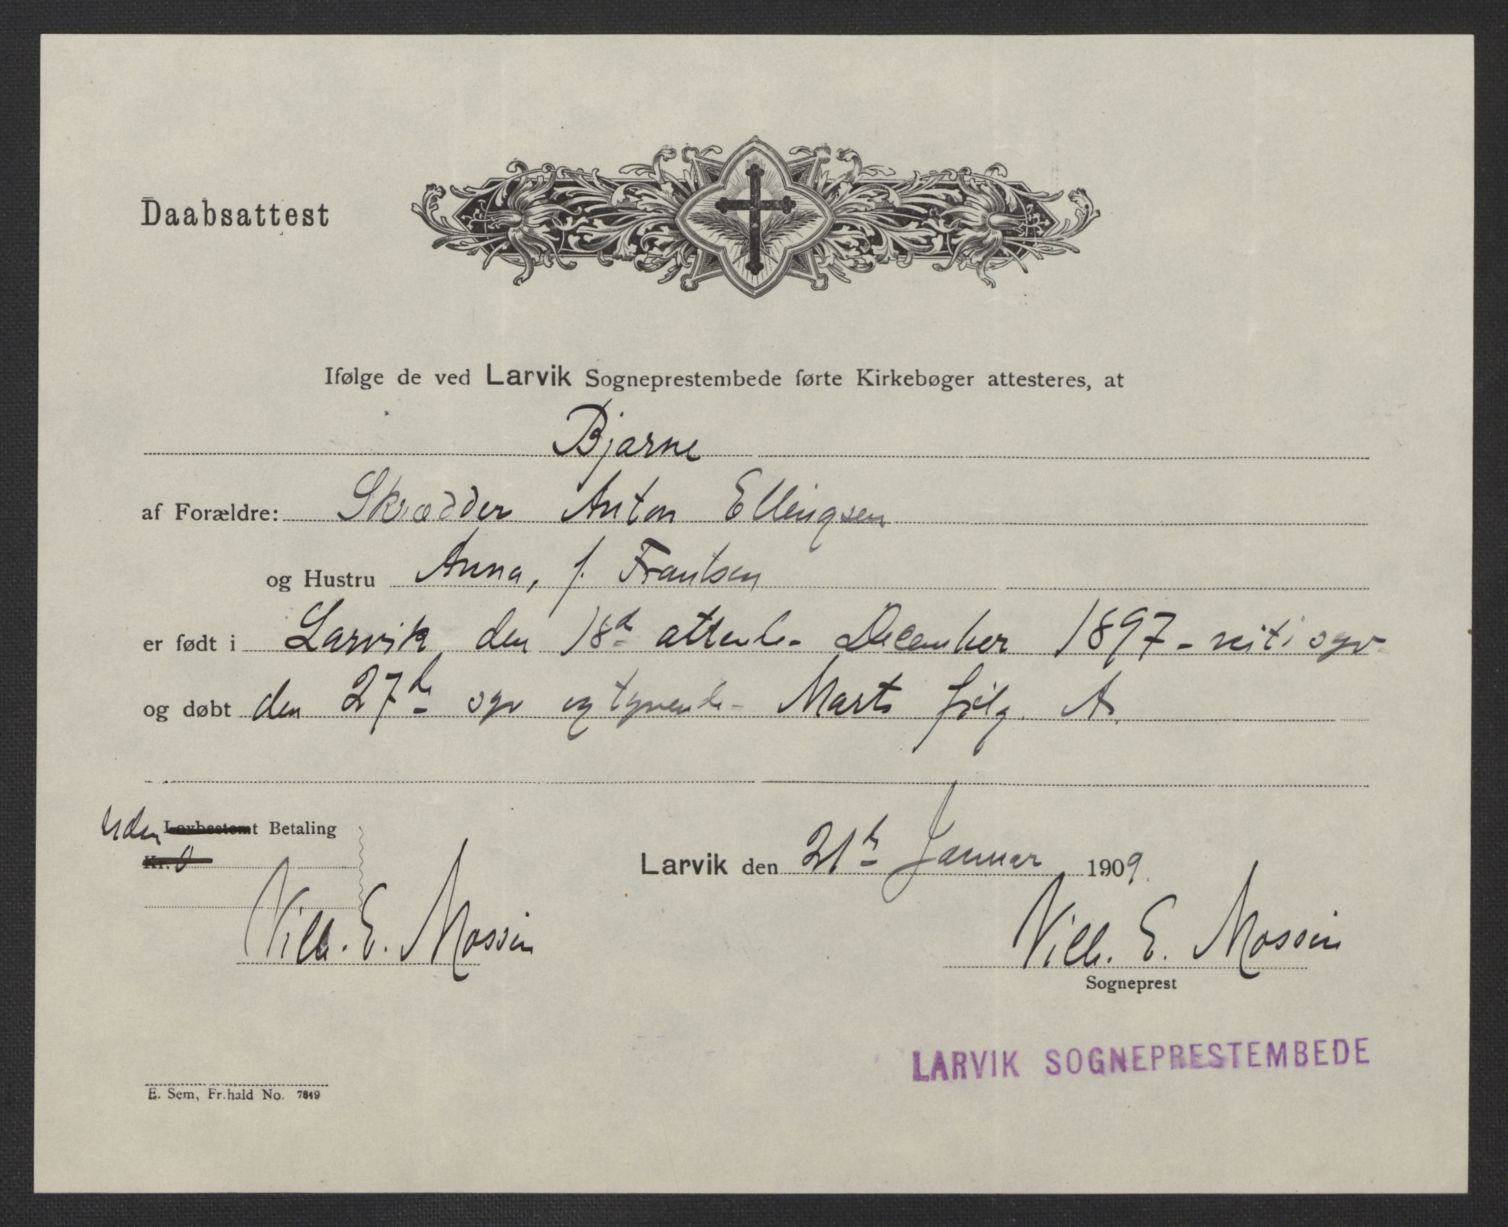 Daabsattest
Ifølge de ved Larvik Sogneprestembede førte Kirkebøger attesteres, at
Bjarne
af Forældre: Skrædder Anton Ellingsen
og Hustru Anna, f. Frantsen
er født i Larvik den 18de attende December 1897 - nitisyv-
og døbt den 27de syv og tyvende - Marts følg. A.
uden Lovbestemt Betaling
Kr. 0
Larvik den 21de Januar 1909.
Vilh. E. Mossin
Vilh. E. Mossin
Sogneprest
LARVIK SOGNEPRESTEMBEDE
E. Sem, Fr.hald No. 7849